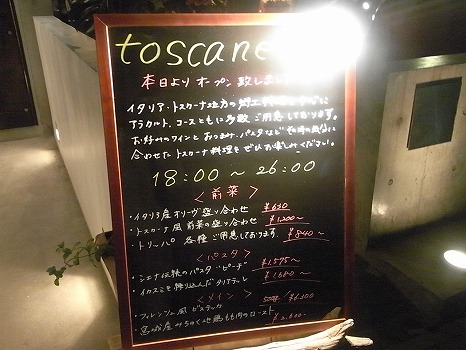 toscane
本日より オープン 致しまし
イタリア・トスカーナ地方の郷土
アラカルト、コースともに多数ご用意しております。
お好みのワインとおつまみ、パスタなど
合わせたトスカーナ料理をぜひお楽しみください。
18:00～26:00
＜前菜＞
・イタリア産オリーヴ盛り合わせ
・トスカーナ風 前菜の盛り合わせ ¥1,200～
・トリッパ 各種ご用意しております。 ¥840～
＜パスタ＞
・シエナ伝統のパスタ"ピーチ" ¥1,575～
・イカスミを練り込んだタリアテッレ ¥1,680～
＜メイン＞
・フィレンツェ風 ビステッカ ¥6,200
・宮城産みちのく地鶏もも肉のロースト